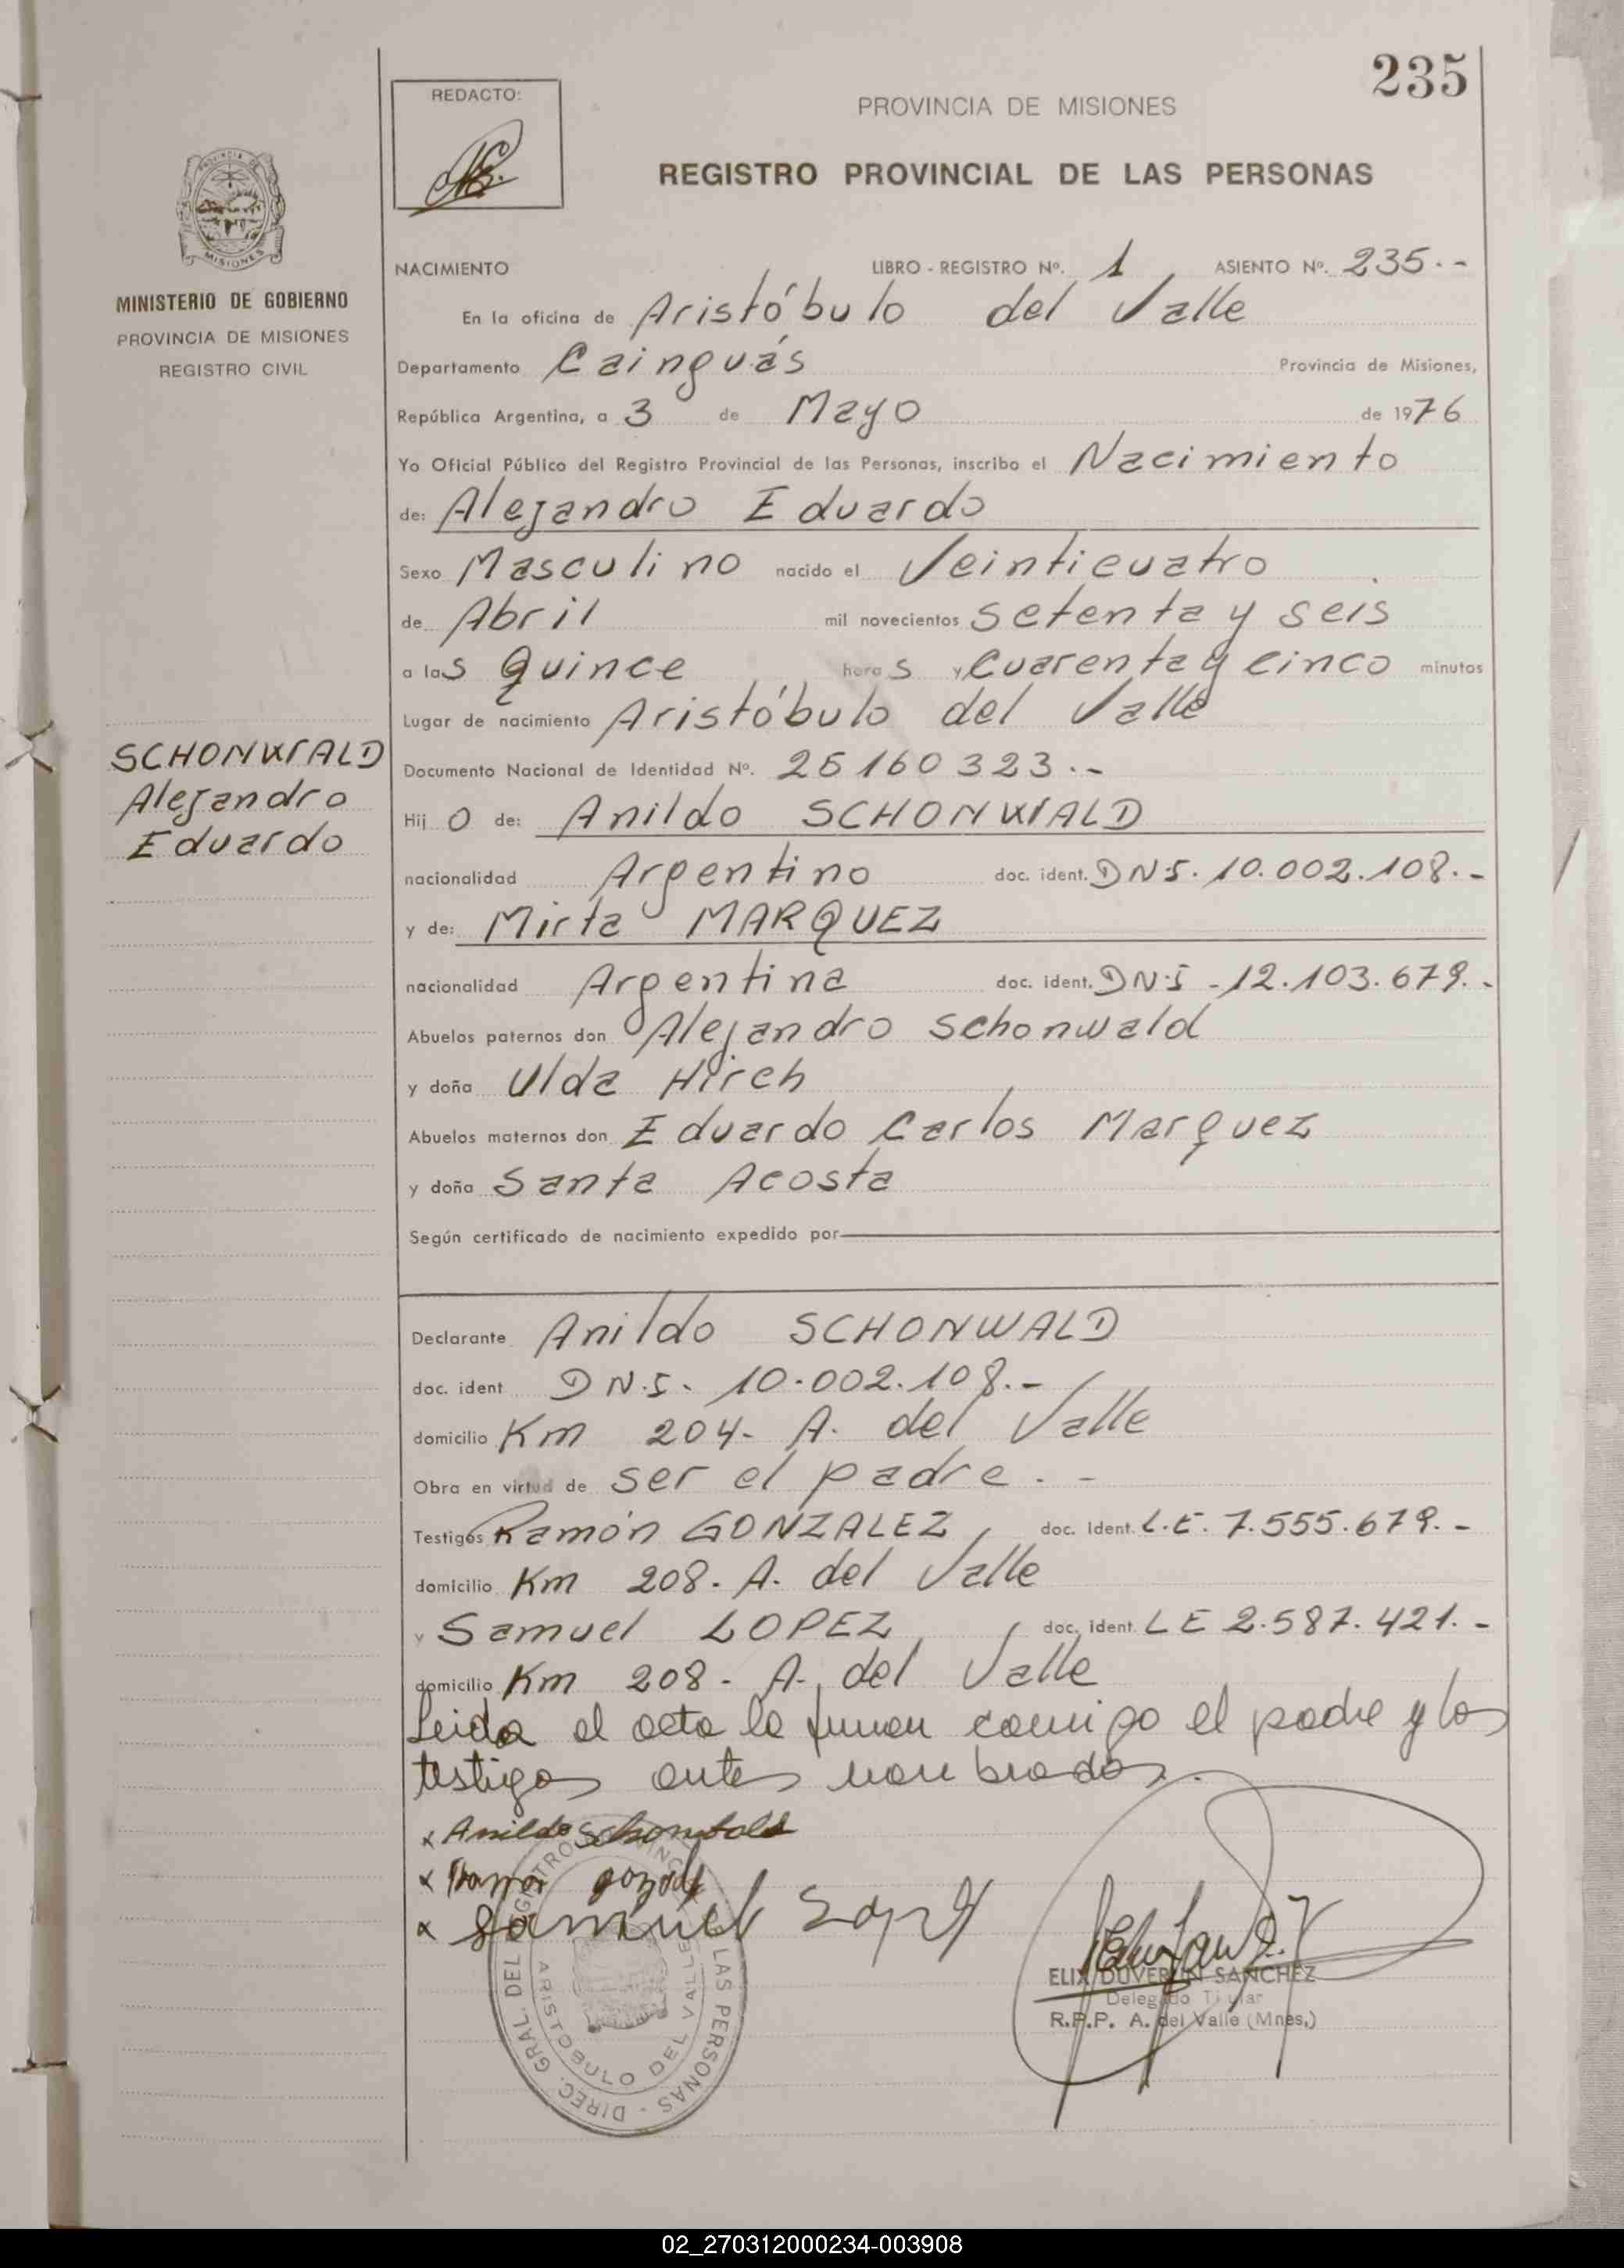 235
REDACTO:
PROVINCIA DE MISIONES
REGISTRO PROVINCIAL DE LAS PERSONAS
MISIONES
MINISTERIO DE GOBIERNO
PROVINCIA DE MISIONES
REGISTRO CIVIL
NACIMIENTO LIBRO - REGISTRO Nº. 1, ASIENTO Nº. 235.-
En la oficina de Aristóbulo del Valle
Departamento Cainguás Provincia de Misiones,
República Argentina, a 3 de Mayo de 1976
Yo Oficial Público del Registro Provincial de las Personas, inscribo el Nacimiento
de: Alejandro Eduardo
Sexo Masculino nacido el Veinticuatro
de Abril mil novecientos setenta y seis
a las quince horas y cuarenta y cinco minutos
Lugar de nacimiento Aristóbulo del Valle
SCHONWALD
Alejandro
Eduardo
Documento Nacional de Identidad Nº. 25160323.-
Hijo de: Anildo SCHONWALD
nacionalidad Argentino doc. ident. DNI. 10.002.108.-
y de: Mirta MARQUEZ
nacionalidad Argentina doc. ident. DNI - 12.103.679.-
Abuelos paternos don Alejandro Schonwald
y doña Ulda Hirch
Abuelos maternos don Eduardo Carlos Marquez
y doña Santa Acosta
Según certificado de nacimiento expedido por
Declarante Anildo SCHONWALD
doc. ident DN.I. 10.002.108.-
domicilio Km 204- A. del Valle
Obra en virtud de ser el padre.-
Testigos Ramón GONZALEZ, doc. Ident. L.E. 7.555.679.-
domicilio Km 208. A. del Valle
y Samuel LOPEZ, doc. ident. LE 2.587.421.-
domicilio Km 208- A. del Valle
Leida el acta la firman conmigo el padre y los
testigos antes nombrados.
x Anildo Schonwald
x Ramon
x Samuel
DIREC. GRAL. DEL REGISTRO LAS PERSONAS
ARISTOBULO DEL VALLE
ELIX DUVER SANCHEZ
Delegado Titular
R.P.P. A. del Valle (Mnes,)
02_270312000234-003908